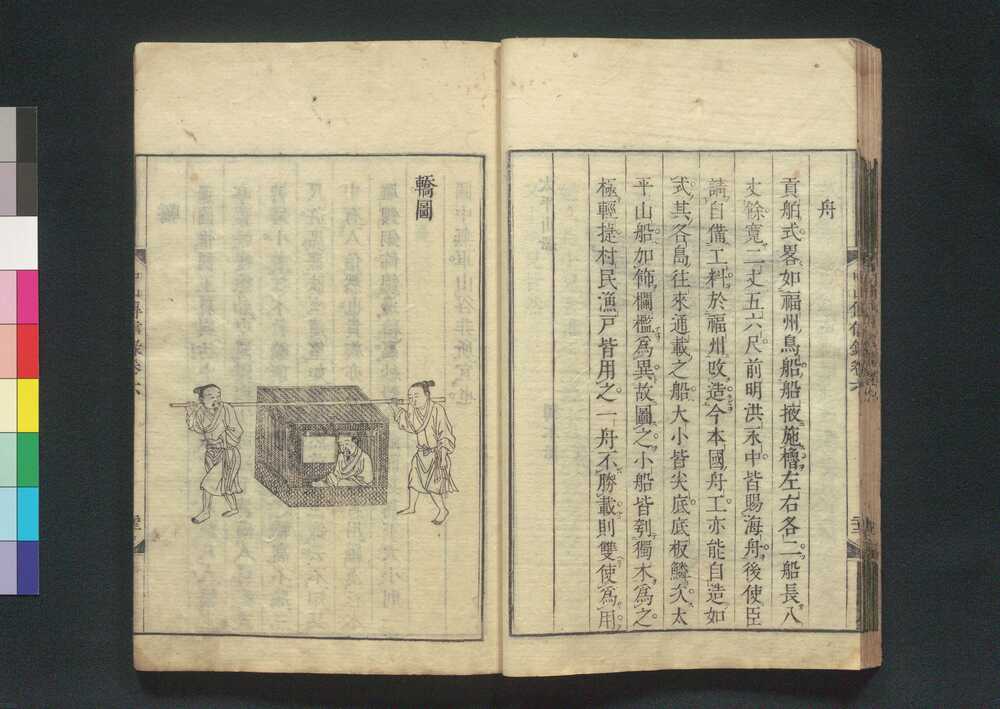 舟
貢舶式畧如福州鳥船船掖施櫓左右各二船長八
丈餘寬二丈五六尺前明洪永中皆賜海舟後使臣
請自備工料於福州改造今本國舟工亦能自造如
式其各島往來通載之船大小皆尖底底板鱗次太
平山船如飾欄檻爲異故圖之小船皆刳獨木爲之
極輕捷村民漁戸皆用之一舟不勝載則雙使爲用
轎圖